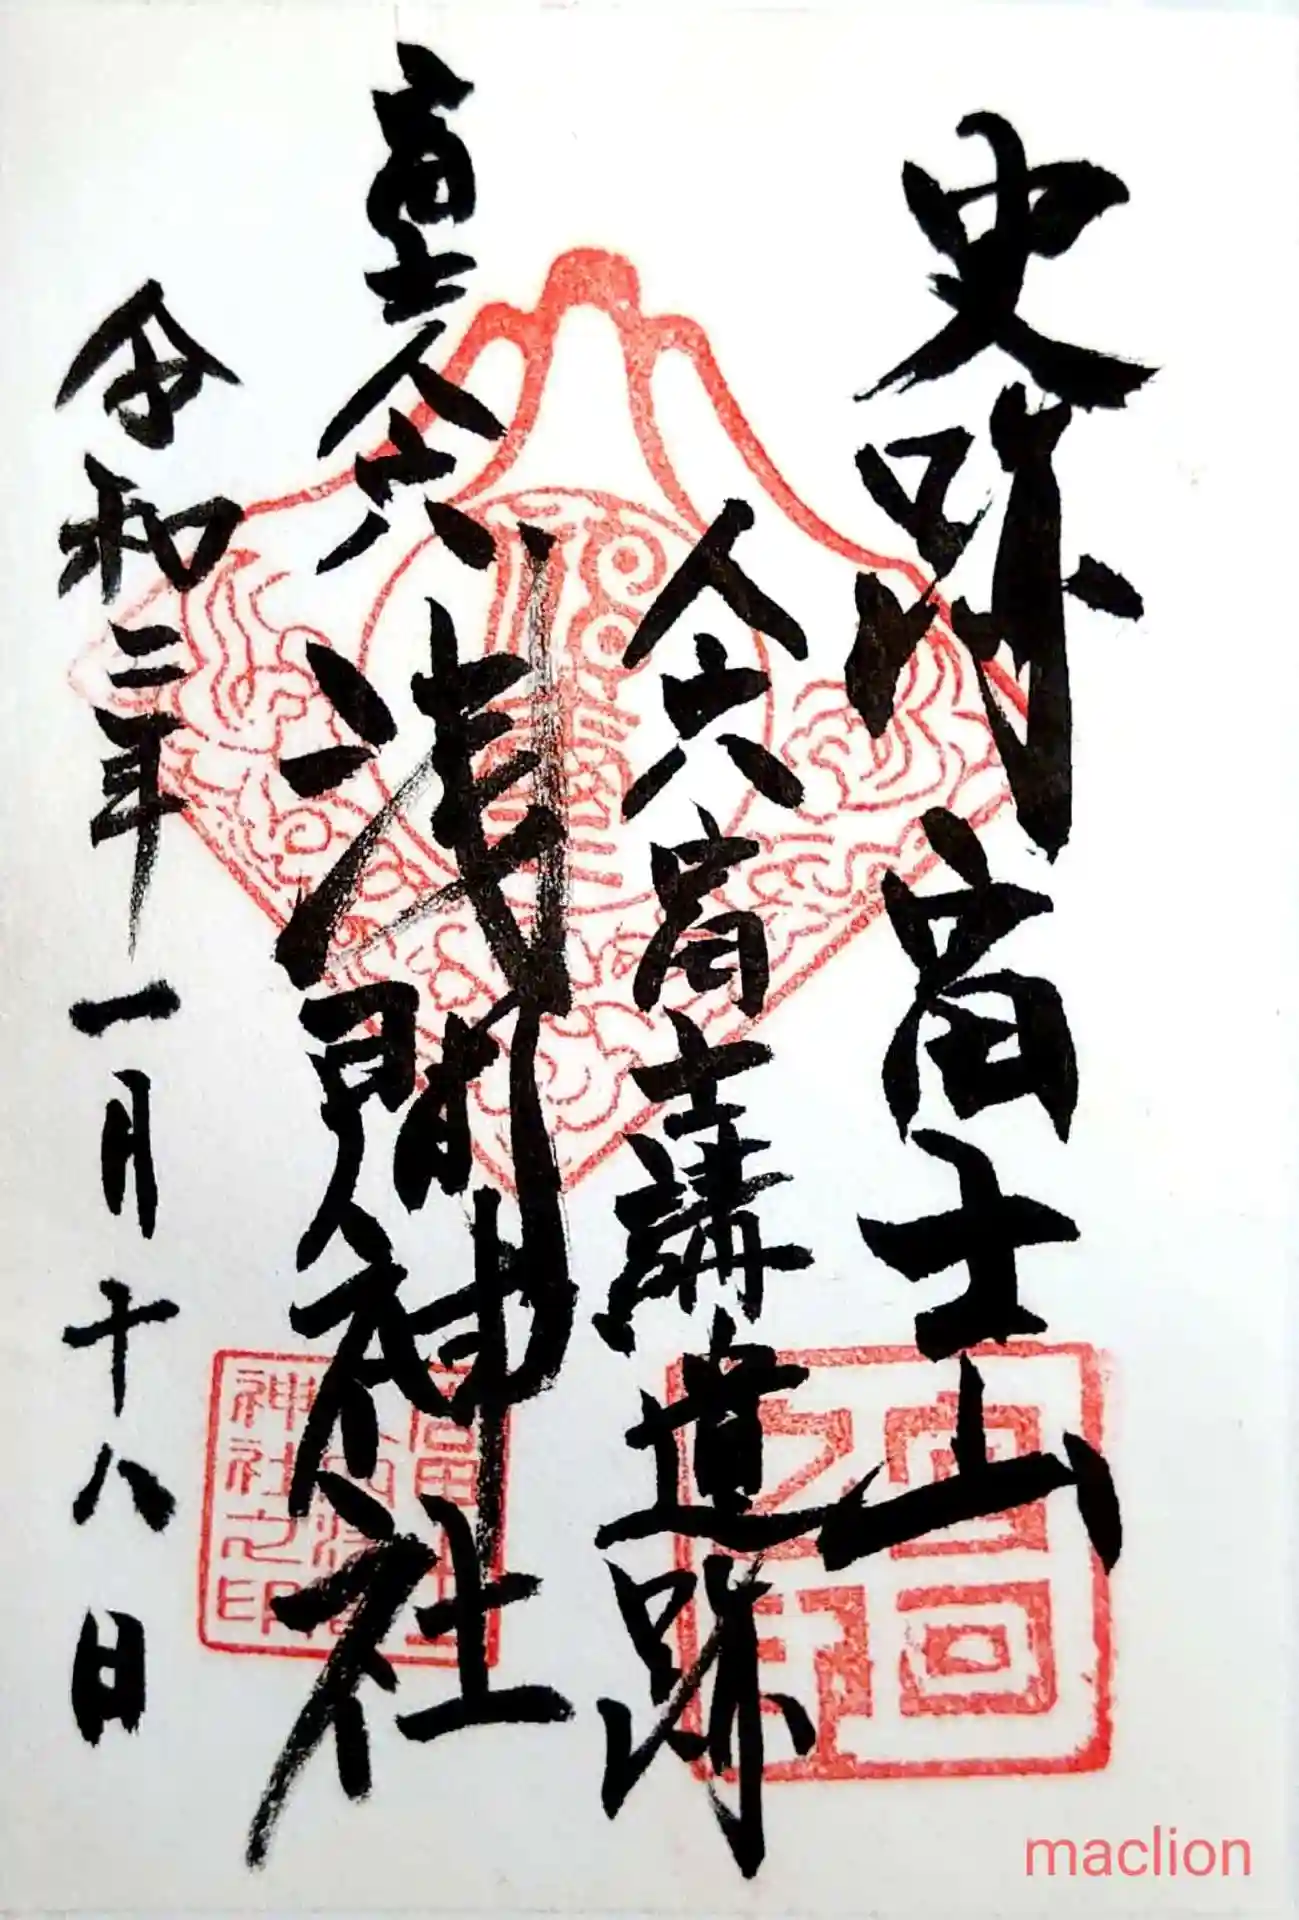 史跡 富士山
人穴富士講遺跡
富士人穴
浅間神社
令和二年一月十八日
神社之印
maclion